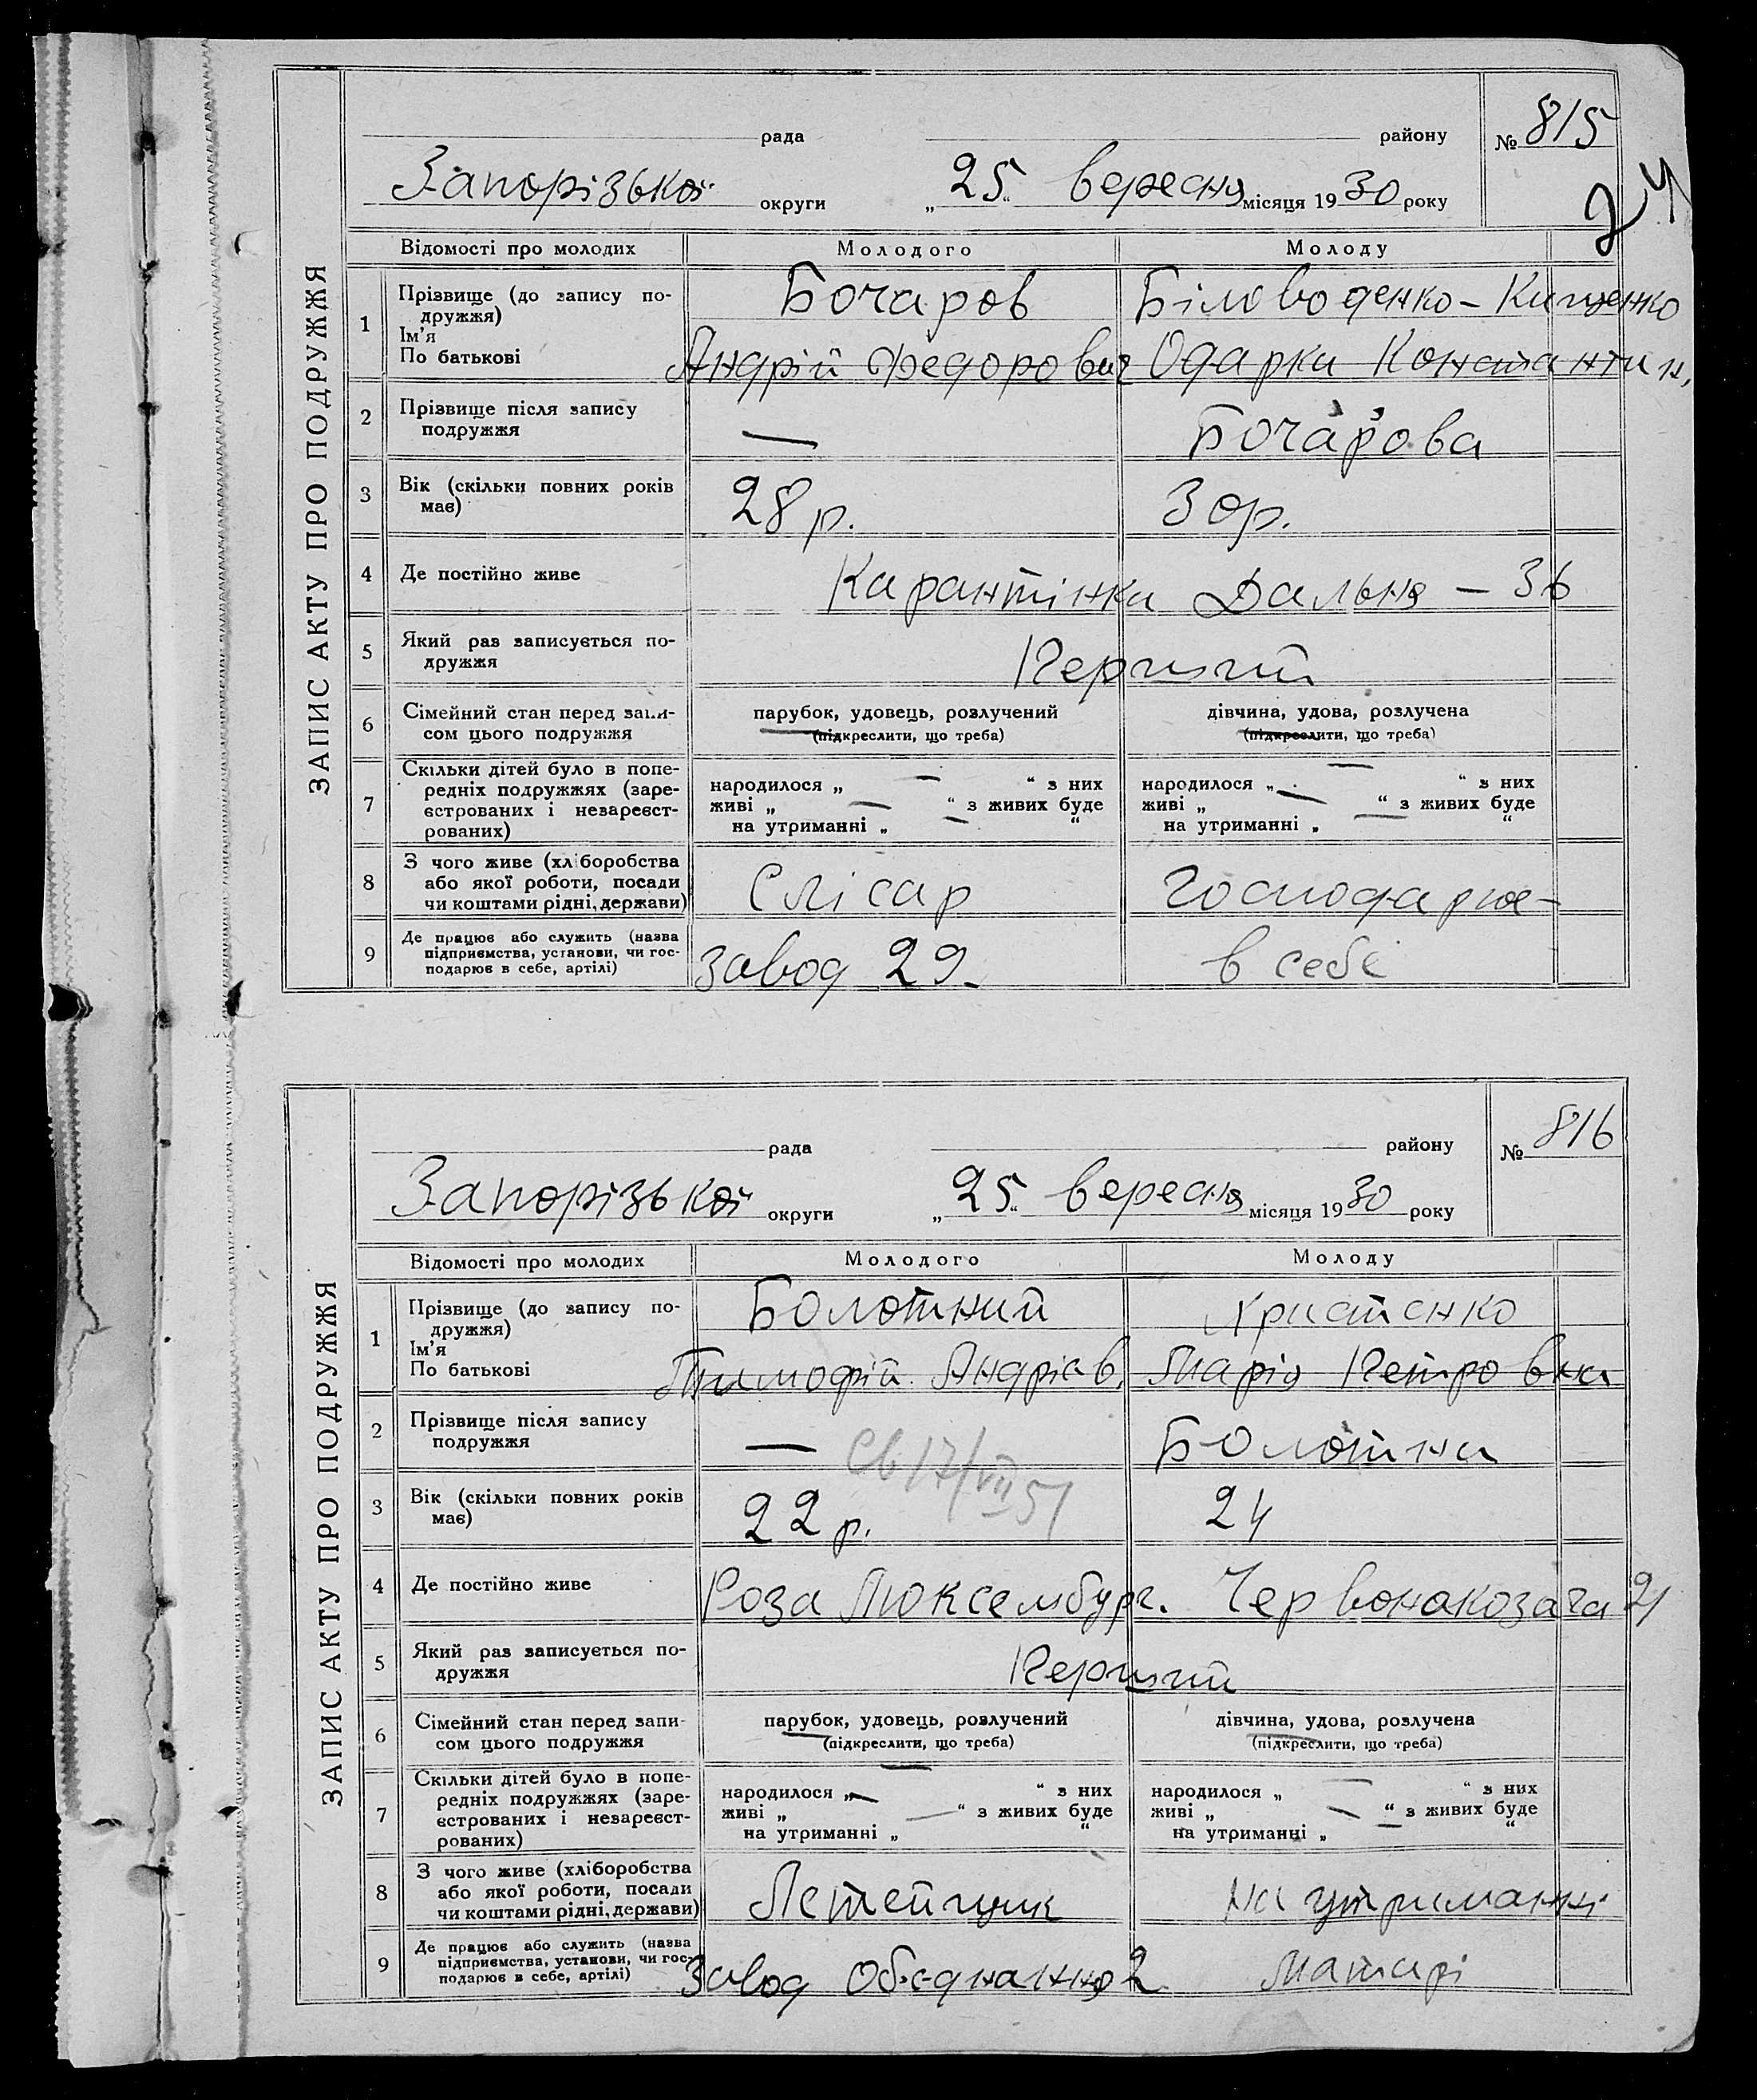 ЗАПИС АКТУ ПРО ПОДРУЖЖЯ
рада района № 815
Запорізької округи „25“ вересня місяця 1930 року
24
Відомості про молодих Молодого Молоду
1 Прізвище (до запису подружжя) Ім’я По батькові
Бочаров Біловоденко-Кищенко
Андрій Федорович Одарка Константин.
2 Прізвище після запису подружжя — Бочарова
3 Вік (скільки повних років має) 28 р. 30 р.
4 Де постійно живе Карантінка Дальня – 36
5 Який раз записується подружжя Перший
6 Сімейний стан перед записом цього подружжя
парубок, удовець, розлучений дівчина, удова, розлучена
(підкреслити, що треба) (підкреслити, що треба)
7 Скільки дітей було в попередніх подружжях (зареєстрованих і незареєстрованих)
народилося „ — “ з них народилося „ — “ з них
живі „ — “ з живих буде живі „ — “ з живих буде
на утриманні „ — “ на утриманні „ — “
8 З чого живе (хліборобства або якої роботи, посади чи коштами рідні, держави) Слісар Господарює
9 Де працює або служить (назва підприємства, установи, чи господарює в себе, артілі) завод 29. в себе
ЗАПИС АКТУ ПРО ПОДРУЖЖЯ
рада району № 816
Запорізької округи „25“ вересня місяця 1930 року
Відомості про молодих Молодого Молоду
1 Прізвище (до запису подружжя) Ім’я По батькові
Болотний Христенко
Тимофій Андрієв. Марія Петровна
2 Прізвище після запису подружжя — Болотна
Св 17/VII 51
3 Вік (скільки повних років має) 22 р. 24
4 Де постійно живе Роза Люксембург. Червонакозача 21
5 Який раз записується подружжя Перший
6 Сімейний стан перед записом цього подружжя
парубок, удовець, розлучений дівчина, удова, розлучена
(підкреслити, що треба) (підкреслити, що треба)
7 Скільки дітей було в попередніх подружжях (зареєстрованих і незареєстрованих)
народилося „ — “ з них народилося „ — “ з них
живі „ — “ з живих буде живі „ — “ з живих буде
на утриманні „ “ на утриманні „ — “
8 З чого живе (хліборобства або якої роботи, посади чи коштами рідні, держави) Летейщик на утриманні
9 Де працює або служить (назва підприємства, установи, чи господарює в себе, артілі) Завод Об'єднання 2 матері